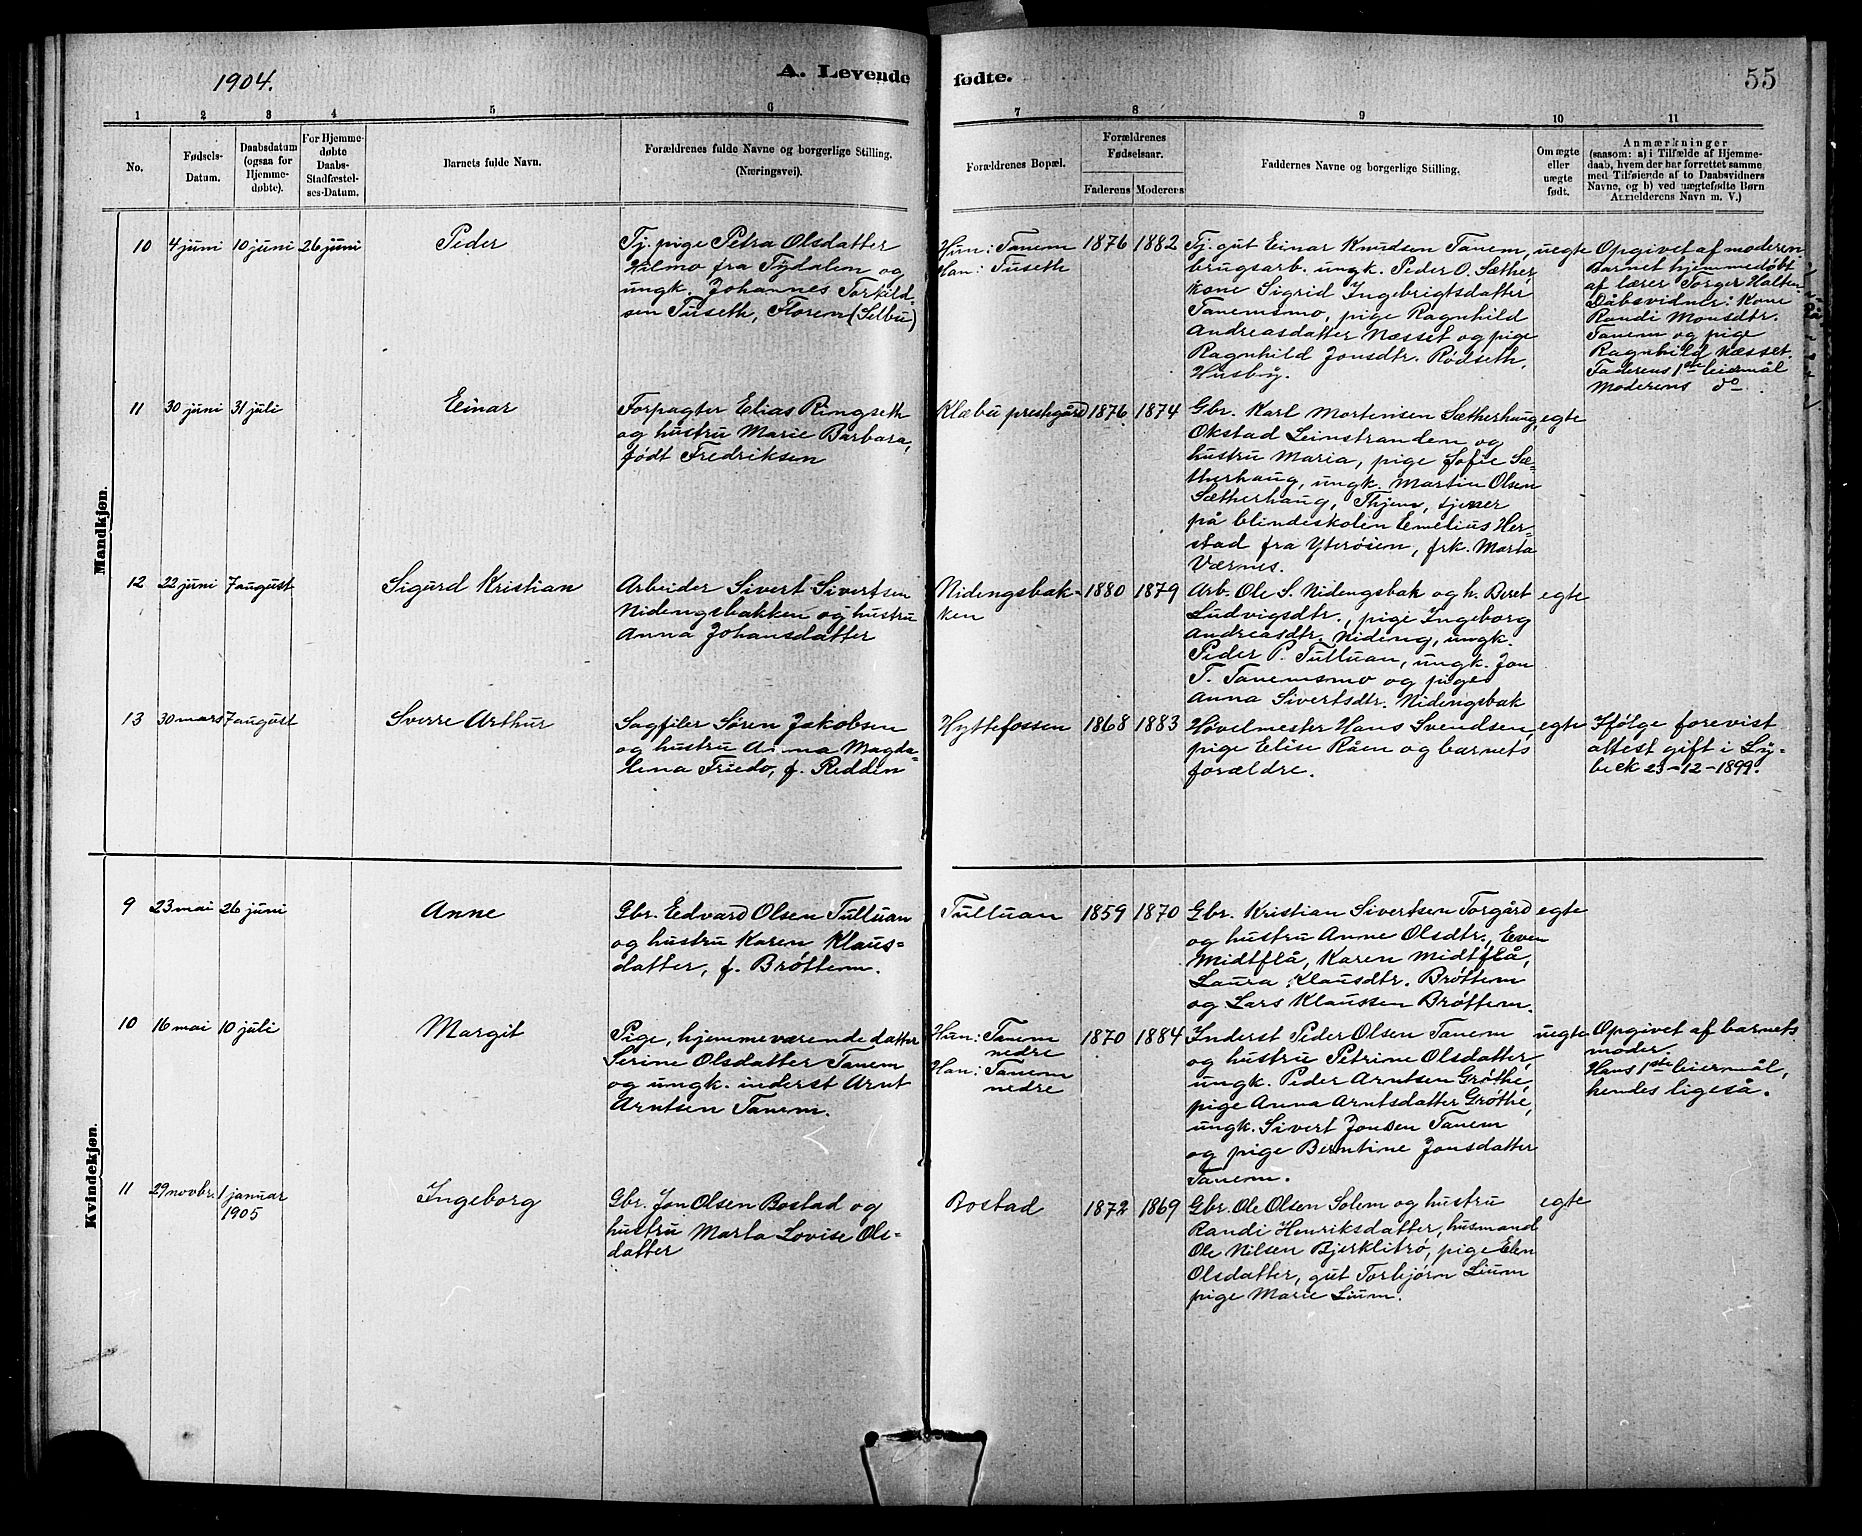 1904.
A. Levende
fødte.
55
1
2
3
4
5
6
7
8
9
10
11
No.
Fødsels-
Datum.
Daabsdatum
(ogsaa for
Hjemme-
døbte).
For Hjemme-
døbte
Daabs-
Stadfæstel-
ses-Datum.
Barnets fulde Navn.
Forældrenes fulde Navne og borgerlige Stilling.
(Næringsvei).
Forældrenes Bopæl.
Forældrenes
Fødselsaar.
Faderens
Moderens
Faddernes Navne og borgerlige Stilling.
Om ægte
eller
uægte
født.
Anmærkninger
(saasom: a) i Tilfælde af Hjemme-
daab, hvem der har forrettet samme
med Tilføiende af to Daabsvidners
Navne, og b) ved uægtefødte Børn
Alfielderens Navn m. V.)
Mandkjøn.
10 4 juni 10 juni 26 juni
Peder
Tj. pige Petra Olsdatter
Hilmo fra Tydalen og
ungk. Johannes Torkild-
sen Tuseth, Floren (Selbu)
Hun: Tanem
Han: Tuseth
1876 1882
Tj. gut Einar Knudsen Tanem,
brugsarb. ungk. Peder O. Sæther,
kone Sigrid Ingebrigtsdatter
Tanemsmo, pige Ragnhild
Andreasdatter Næsset og pige
Ragnhild Jonsdtr. Rødseth,
Husby.
uegte
Opgivet af moderen.
Barnet hjemmedøbt
af lærer Torger Halten.
Dåbsvidner: Kone
Randi Monsdtr.
Tanem og pige
Ragnhild Næsset.
Faderens 1ste leiermål
Moderens do
11 30 juni 31 juli
Einar
Forpagter Elias Ringseth
og hustru Marie Barbara,
født Fredriksen
Klæbu prestegård
1876 1874
Gbr. Karl Mortensen Sætherhaug,
Okstad Leinstranden og
hustru Maria, pige Sofie Sæ-
therhaug, ungk. Martin Olsen
Sætherhaug, Thjem, tjener
på blindeskolen Emelius Her-
stad fra Yterøien, frk. Marta
Værnes.
egte
12 22 juni 7 august
Sigurd Kristian
Arbeider Sivert Sivertsen
Nidengsbakken og hustru
Anna Johansdatter
Nidengsbak-
ken
1880 1879
Arb. Ole S. Nidengsbak og h. Beret
Ludvigsdtr., pige Ingeborg
Andreasdtr. Nideng, ungk.
Peder P. Tulluan, ungk. Jon
T. Tanemsmo og pige
Anna Sivertsdtr. Nidengsbak
egte
13 30 mars 7 august
Sverre Arthur
Sagfiler Søren Jakobsen
og hustru Anna Magda-
lena Friedo, f. Redden
Hyttefossen
1868 1883
Høvelmester Hans Svendsen,
pige Elise Råen og barnets
forældre.
egte
Ifølge forevist
attest gift i Ly-
beck 23-12-1899.
Kvindekjøn.
9 23 mai 26 juni
Anne
Gbr. Edvard Olsen Tulluan
og hustru Karen Klaus-
datter, f. Brøttem.
Tulluan
1859 1870
Gbr. Kristian Sivertsen Torgård
og hustru Anne Olsdtr., Even
Midtflå, Karen Midtflå,
Laura Klausdtr. Brøttem
og Lars Klaussen Brøttem.
egte
10 16 mai 10 juli
Margit
Pige, hjemmeværende datter
Serine Olsdatter Tanem
og ungk. inderst Arnt
Arntsen Tanem.
Hun: Tanem
nedre
Han: Tanem
nedre
1870 1884
Inderst Peder Olsen Tanem
og hustru Petrine Olsdatter,
ungk. Peder Arntsen Grøthe,
pige Anna Arntsdatter Grøthe,
ungk. Sivert Jonsen Tanem
og pige Berntine Jonsdatter
Tanem.
uegte
Opgivet af barnets
moder.
Hans 1ste leiermål,
hendes ligeså.
11 29 novbr. 1 januar
1905
Ingeborg
Gbr. Jon Olsen Bostad og
hustru Marta Lovise Ols-
datter
Bostad
1872 1869
Gbr. Ole Olsen Solem og hustru
Randi Henriksdatter, husmand
Ole Nilsen Bjerklitrø, pige Elen
Olsdatter, gut Torbjørn Lium
pige Marie Lium.
egte